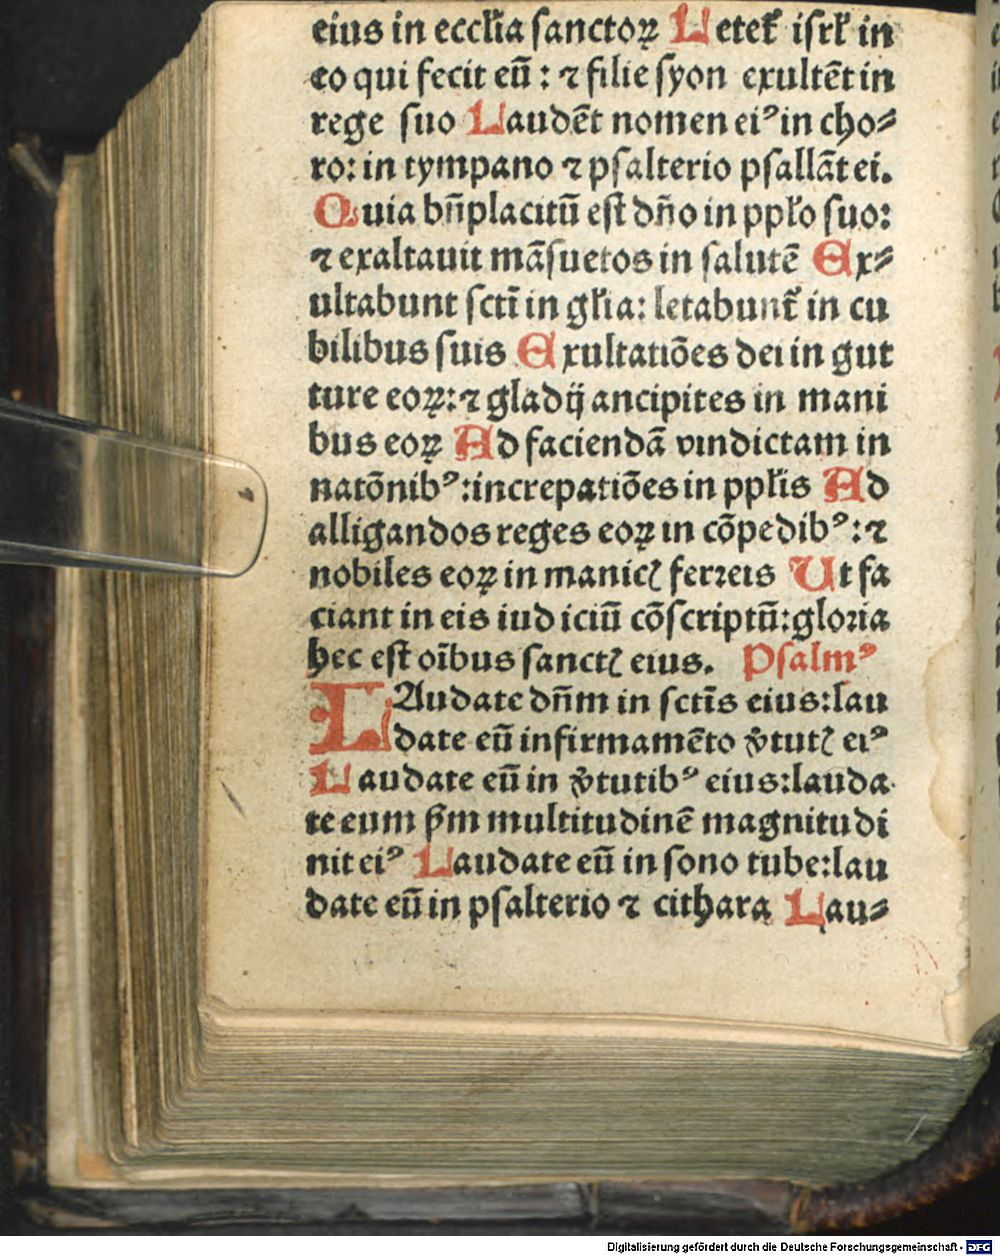 eius in eccľia ſanctoꝝ Letet̃ iſrľ in
eo qui fecit eū : ⁊ filie ſyon exultēt in
rege ſuo Laudēt nomen eiꝰ in cho⸗
ro: in tympano ⁊ pſalterio pſallāt ei.
Quia bn̄placitū eſt dn̄o in ppľo ſuo:
⁊ exaltauit māſuetos in ſalutē Ex⸗
ultabunt ſcti̅ in gľia: letabunt̃ in cu
bilibus ſuis Exultatiōes dei in gut
ture eoꝝ: ⁊ gladij ancipites in mani
bus eoꝝ Ad faciendā vindictam in
natōnibꝰ: increpatiōes in ppľis Ad
alligandos reges eoꝝ in cōpedibꝰ: ⁊
nobiles eoꝝ in manicꝭ ferreis Ut fa
ciant in eis iudiciū cōſcriptū: gloria
hec eſt oi̅bus ſanctꝭ eius. Pſalmꝰ
LAudate dn̄m in ſcti̅s eius: lau
date eū in firmamēto v̓tutꝭ eiꝰ
Laudate eū in v̓tutibꝰ eius: lauda
te eum ẜm multitudinē magnitudi
nit eiꝰ Laudate eū in ſono tube: lau
date eū in pſalterio ⁊ cithara Lau⸗
Digitalisierung gefördert durch die Deutsche Forschungsgemeinschaft - DFG